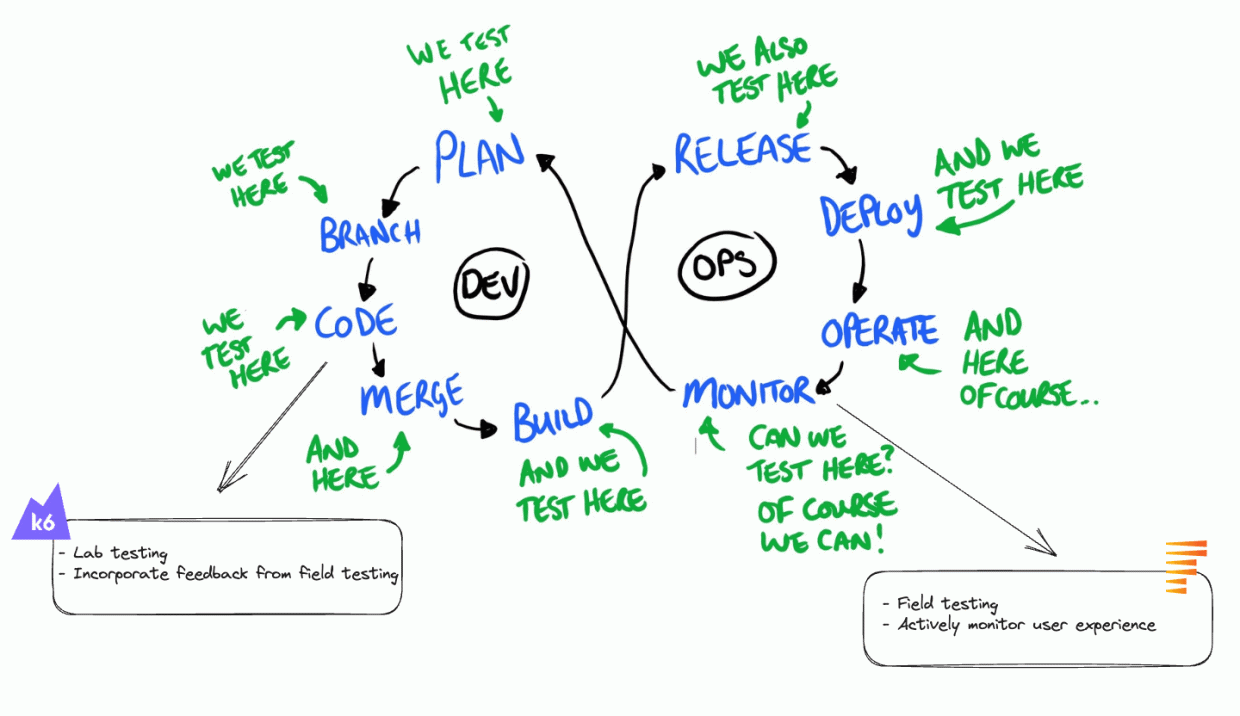 WE TEST
HERE
PLAN
WE TEST
HERE
BRANCH
WE
TEST
HERE
CODE
MERGE
AND
HERE
BUILD
AND WE
TEST HERE
DEV
WE ALSO
TEST HERE
RELEASE
AND WE
TEST HERE
DEPLOY
OPS
OPERATE
AND
HERE
OF COURSE...
MONITOR
CAN WE
TEST HERE?
OF COURSE
WE CAN!
k6
- Lab testing
- Incorporate feedback from field testing
- Field testing
- Actively monitor user experience